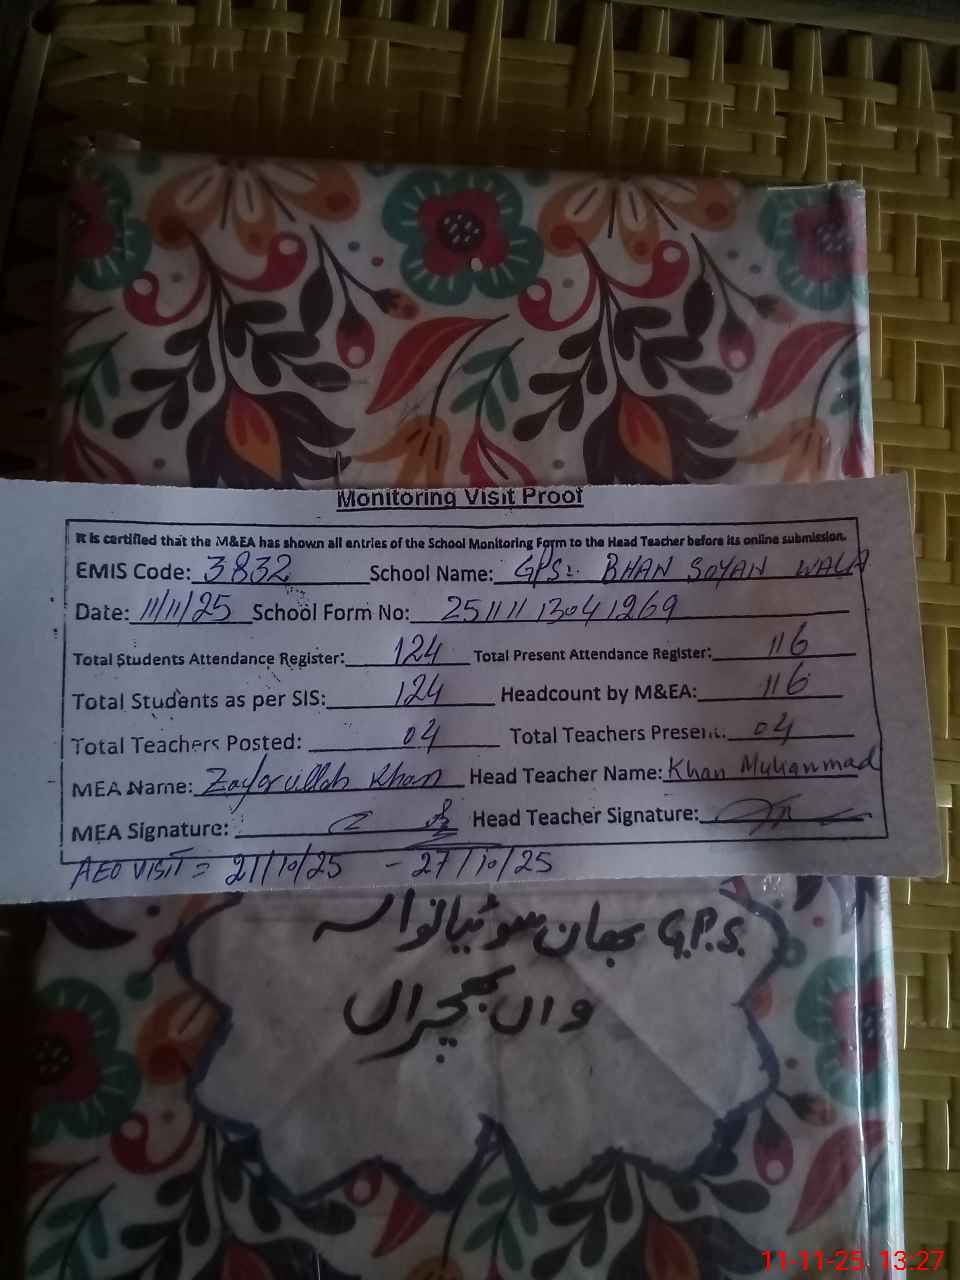 Monitoring Visit Proof
It is certified that the M&EA has shown all entries of the School Monitoring Form to the Head Teacher before its online submission.
EMIS Code: 3832 School Name: GPS:. BHAN SOYAN WALA
Date: 11/11/25 School Form No: 25111113041269
Total Students Attendance Register: 124 Total Present Attendance Register: 116
Total Students as per SIS: 124 Headcount by M&EA: 116
Total Teachers Posted: 04 Total Teachers Present: 04
MEA Name: Zafarullah Khan Head Teacher Name: Khan Muhammad
MEA Signature: Head Teacher Signature:
AEO VISIT = 21/10/25 - 27/10/25
G.P.S. بھان سوئیانوالہ
واں بھچراں
11-11-25 13:27